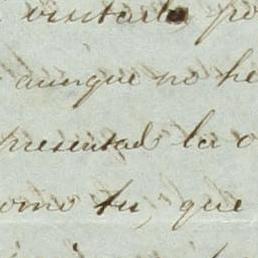 visitarlo po
aunque no he
presentad la o
como tu, que